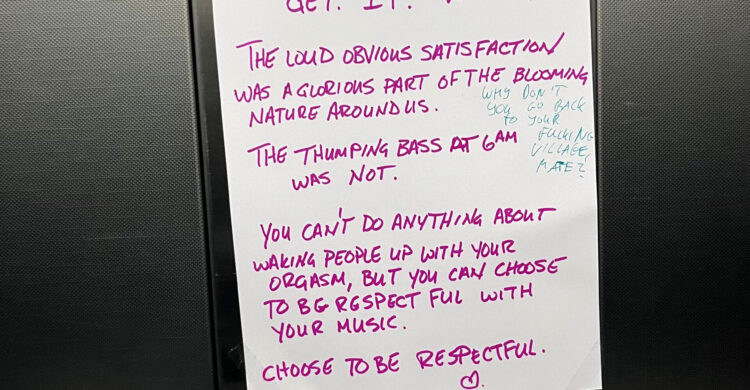 GET. IT.
THE LOUD OBVIOUS SATISFACTION
WAS A GLORIOUS PART OF THE BLOOMING
NATURE AROUND US.
WHY DON'T
YOU GO BACK
TO YOUR
FUCKING
VILLAGE,
MATE?
THE THUMPING BASS AT 6AM
WAS NOT.
YOU CAN'T DO ANYTHING ABOUT
WAKING PEOPLE UP WITH YOUR
ORGASM, BUT YOU CAN CHOOSE
TO BE RESPECT FUL WITH
YOUR MUSIC.
CHOOSE TO BE RESPECTFUL.